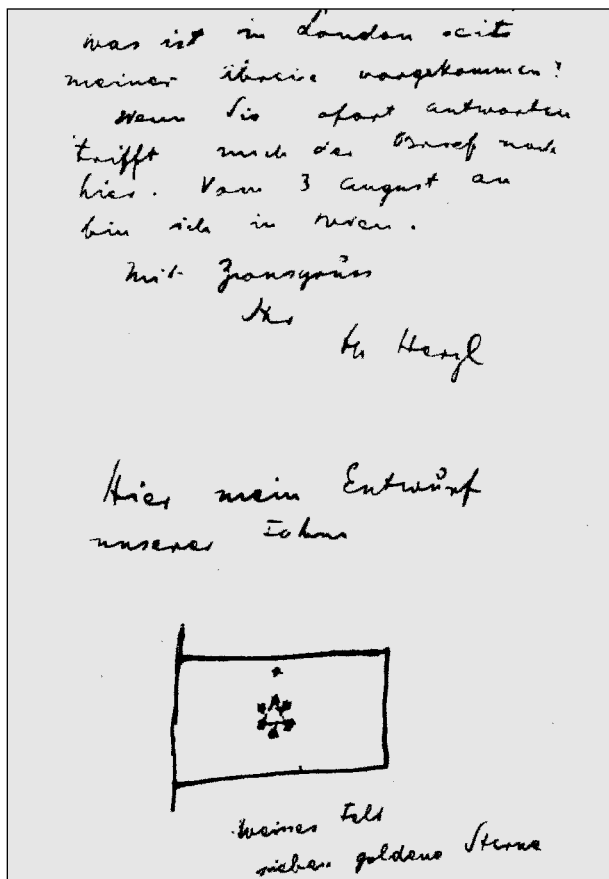 was ist in London seits
meiner Abreise vorgekommen?
Wenn Sie sofort antworten
trifft mich der Brief noch
hier. Vom 3 august an
bin ich in Wien.
Mit Zionsgruss
Ihr
Th Herzl
Hier mein Entwurf
unserer Fahne
weisses Feld
sieben goldene Sterne